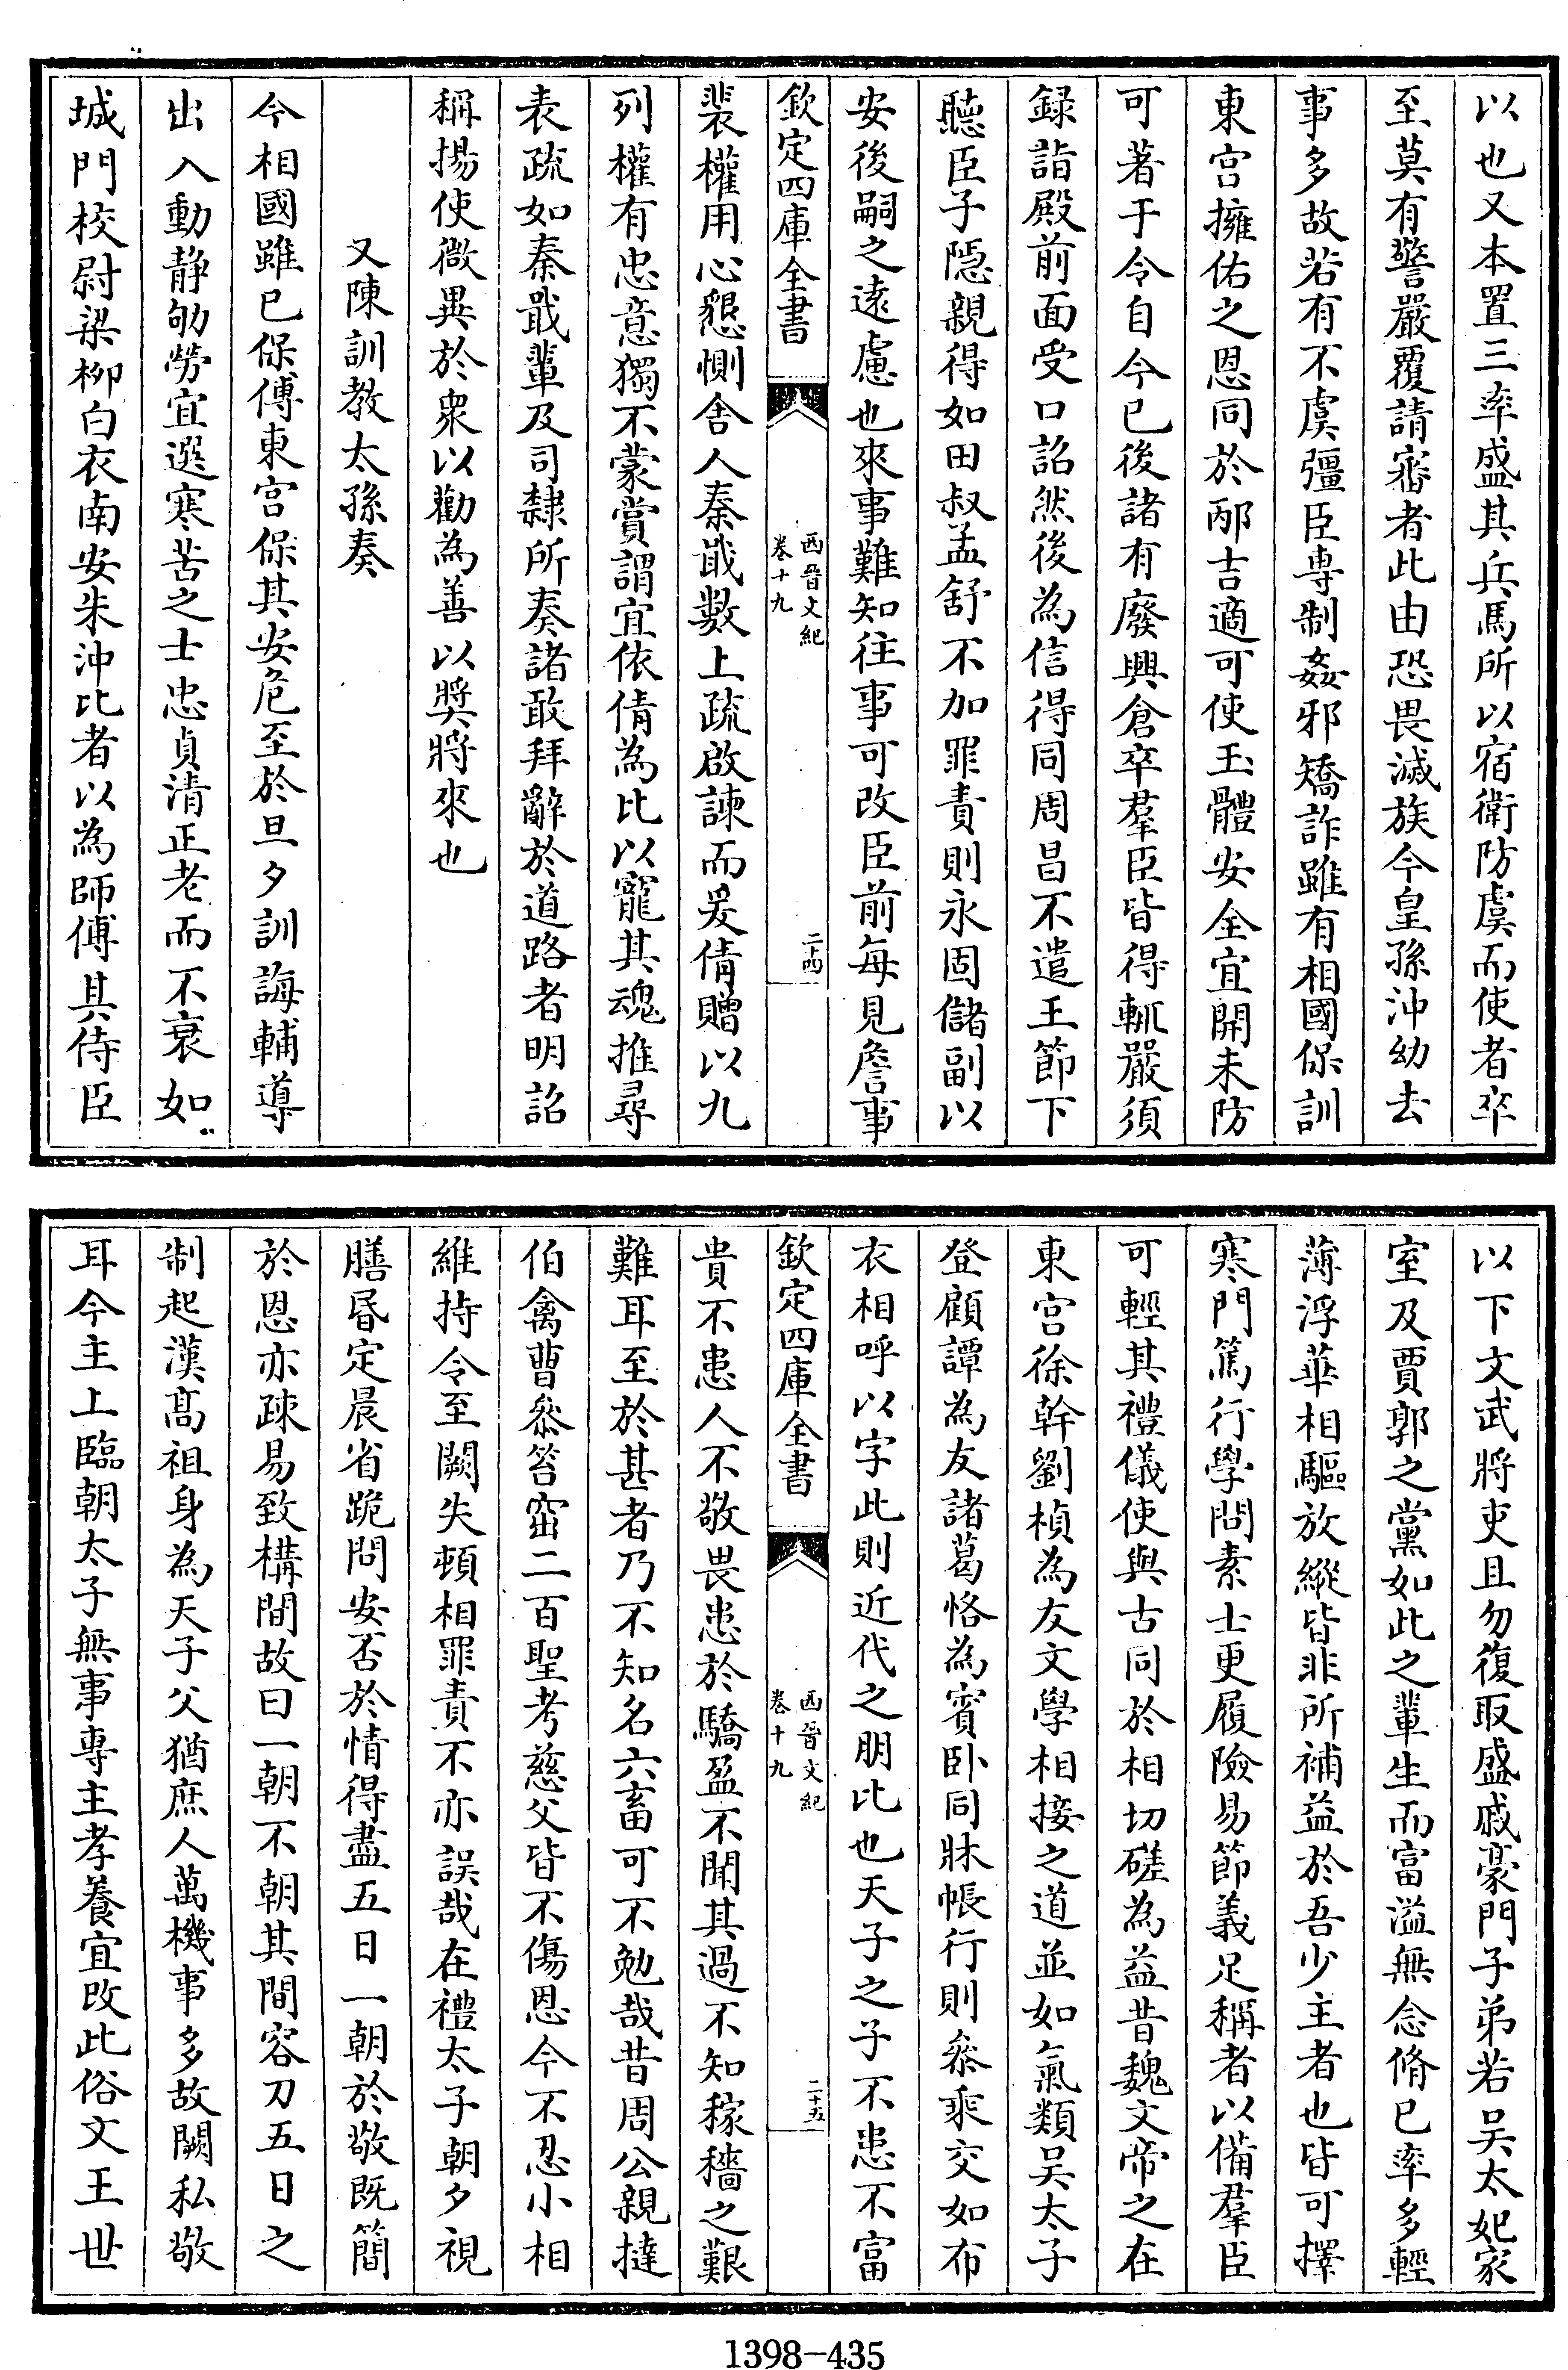 以也又本置三率盛其兵馬所以宿衛防虞而使者卒
至莫有警嚴覆請審者此由恐畏滅族今皇孫沖幼去
事多故若有不虞彊臣専制姦邪矯詐雖有相國保訓
東宮擁佑之恩同於邴吉適可使玉體安全宜開未防
可著于令自今已後諸有廢興倉卒羣臣皆得輒嚴須
録詣殿前面受口詔然後為信得同周昌不遣王節下
聽臣子隱親得如田叔孟舒不加罪責則永固儲副以
安後嗣之遠慮也來事難知往事可改臣前每見詹事
欽定四庫全書
西晉文紀
卷十九
二十四
裴權用心懇惻舍人秦戢數上疏啟諫而爰倩贈以九
列權有忠意獨不蒙賞謂宜依倩為比以寵其魂推尋
表疏如秦戢輩及司隸所奏諸敢拜辭於道路者明詔
稱揚使微異於衆以勸為善以奬將來也
又陳訓教太孫奏
今相國雖已保傅東宮保其安危至於旦夕訓誨輔導
出入動靜劬勞宜選寒苦之士忠貞清正老而不衰如
城門校尉梁柳白衣南安朱沖比者以為師傅其侍臣
以下文武將吏且勿復取盛戚豪門子弟若吴太妃家
室及賈郭之黨如此之輩生而富溢無念脩已率多輕
薄浮華相驅放縱皆非所補益於吾少主者也皆可擇
寒門篤行學問素士更履險易節義足稱者以備羣臣
可輕其禮儀使與古同於相切磋為益昔魏文帝之在
東宮徐幹劉楨為友文學相接之道並如氣類吴太子
登顧譚為友諸葛恪為賓卧同牀帳行則叅乘交如布
衣相呼以字此則近代之朋比也天子之子不患不富
欽定四庫全書
西晉文紀
卷十九
二十五
貴不患人不敬畏患於驕盈不聞其過不知稼穡之艱
難耳至於甚者乃不知名六畜可不勉哉昔周公親撻
伯禽曹叅笞窋二百聖考慈父皆不傷恩今不忍小相
維持令至闕失頓相罪責不亦誤哉在禮太子朝夕視
膳昏定晨省跪問安否於情得盡五日一朝於敬既簡
於恩亦疎易致構間故曰一朝不朝其間容刀五日之
制起漢髙祖身為天子父猶庶人萬機事多故闕私敬
耳今主上臨朝太子無事專主孝養宜改此俗文王世
1398-435